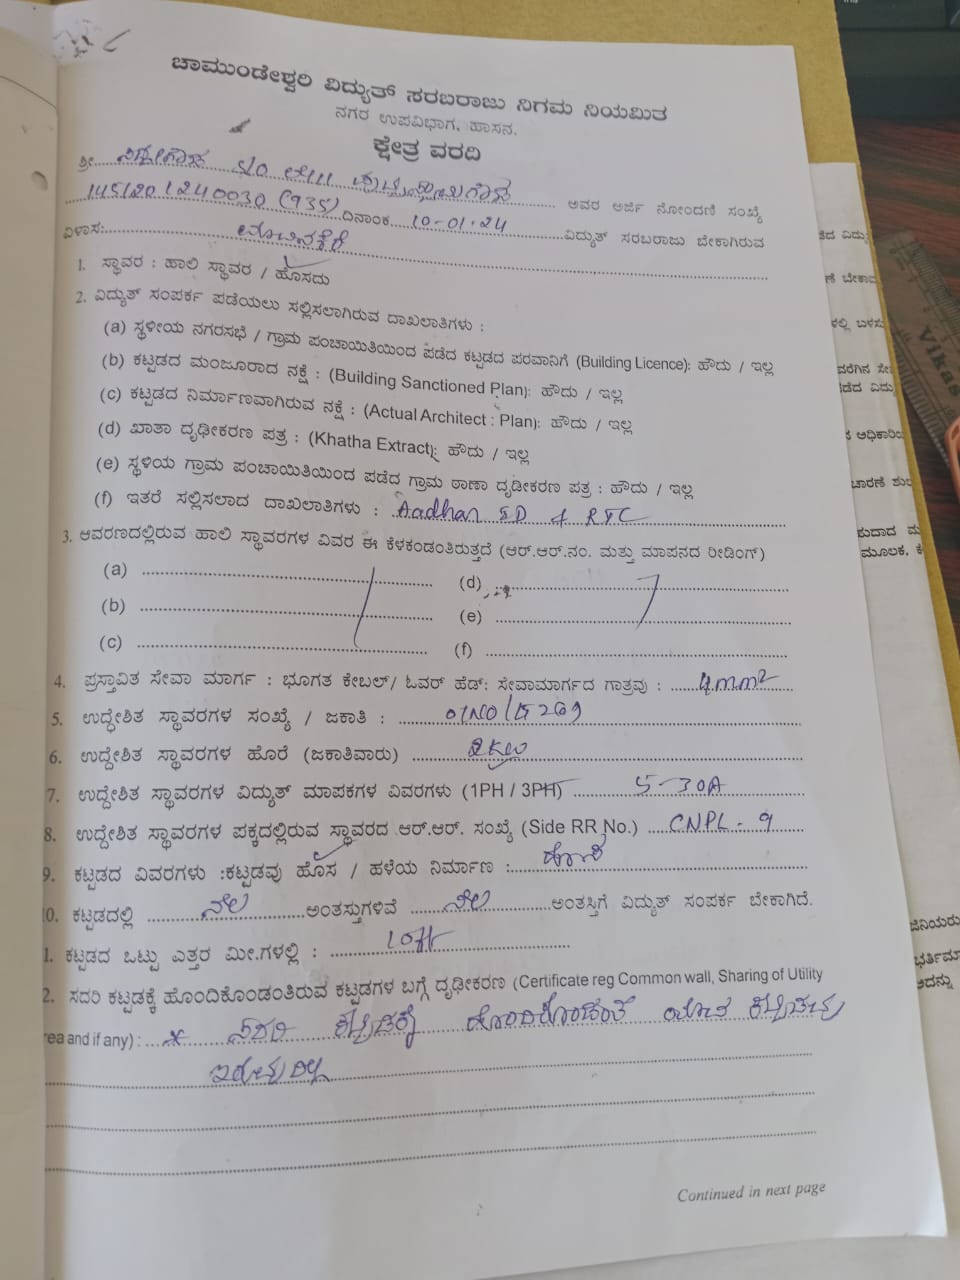 ಚಾಮುಂಡೇಶ್ವರಿ ವಿದ್ಯುತ್ ಸರಬರಾಜು ನಿಗಮ ನಿಯಮಿತ
ನಗರ ಉಪವಿಭಾಗ, ಹಾಸನ.
ಕ್ಷೇತ್ರ ವರದಿ
ಶ್ರೀ S/O ಅವರ ಅರ್ಜಿ ನೋಂದಣಿ ಸಂಖ್ಯೆ
(935) ದಿನಾಂಕ 10-01-24 ವಿದ್ಯುತ್ ಸರಬರಾಜು ಬೇಕಾಗಿರುವ
ವಿಳಾಸ:
1. ಸ್ಥಾವರ : ಹಾಲಿ ಸ್ಥಾವರ / ಹೊಸದು
2. ವಿದ್ಯುತ್ ಸಂಪರ್ಕ ಪಡೆಯಲು ಸಲ್ಲಿಸಲಾಗಿರುವ ದಾಖಲಾತಿಗಳು :
(a) ಸ್ಥಳೀಯ ನಗರಸಭೆ / ಗ್ರಾಮ ಪಂಚಾಯಿತಿಯಿಂದ ಪಡೆದ ಕಟ್ಟಡದ ಪರವಾನಿಗೆ (Building Licence): ಹೌದು / ಇಲ್ಲ
(b) ಕಟ್ಟಡದ ಮಂಜೂರಾದ ನಕ್ಷೆ : (Building Sanctioned Plan): ಹೌದು / ಇಲ್ಲ
(c) ಕಟ್ಟಡದ ನಿರ್ಮಾಣವಾಗಿರುವ ನಕ್ಷೆ : (Actual Architect : Plan): ಹೌದು / ಇಲ್ಲ
(d) ಖಾತಾ ದೃಢೀಕರಣ ಪತ್ರ : (Khatha Extract): ಹೌದು / ಇಲ್ಲ
(e) ಸ್ಥಳಿಯ ಗ್ರಾಮ ಪಂಚಾಯಿತಿಯಿಂದ ಪಡೆದ ಗ್ರಾಮ ಠಾಣಾ ದೃಡೀಕರಣ ಪತ್ರ : ಹೌದು / ಇಲ್ಲ
(f) ಇತರೆ ಸಲ್ಲಿಸಲಾದ ದಾಖಲಾತಿಗಳು : Aadhar RTC
3. ಆವರಣದಲ್ಲಿರುವ ಹಾಲಿ ಸ್ಥಾವರಗಳ ವಿವರ ಈ ಕೆಳಕಂಡಂತಿರುತ್ತದೆ (ಆರ್.ಆರ್.ನಂ. ಮತ್ತು ಮಾಪನದ ರೀಡಿಂಗ್)
(a) (d)
(b) (e)
(c) (f)
4. ಪ್ರಸ್ತಾವಿತ ಸೇವಾ ಮಾರ್ಗ : ಭೂಗತ ಕೇಬಲ್/ ಓವರ್ ಹೆಡ್: ಸೇವಾಮಾರ್ಗದ ಗಾತ್ರವು : 4mm²
5. ಉದ್ದೇಶಿತ ಸ್ಥಾವರಗಳ ಸಂಖ್ಯೆ / ಜಕಾತಿ :
6. ಉದ್ದೇಶಿತ ಸ್ಥಾವರಗಳ ಹೊರೆ (ಜಕಾತಿವಾರು) 2KW
7. ಉದ್ದೇಶಿತ ಸ್ಥಾವರಗಳ ವಿದ್ಯುತ್ ಮಾಪಕಗಳ ವಿವರಗಳು (1PH / 3PH) 5-30A
8. ಉದ್ದೇಶಿತ ಸ್ಥಾವರಗಳ ಪಕ್ಕದಲ್ಲಿರುವ ಸ್ಥಾವರದ ಆರ್.ಆರ್. ಸಂಖ್ಯೆ (Side RR No.) CNPL-9
9. ಕಟ್ಟಡದ ವಿವರಗಳು :ಕಟ್ಟಡವು ಹೊಸ / ಹಳೆಯ ನಿರ್ಮಾಣ :
0. ಕಟ್ಟಡದಲ್ಲಿ ನೆಲ ಅಂತಸ್ತುಗಳಿವೆ ನೆಲ ಅಂತಸ್ತಿಗೆ ವಿದ್ಯುತ್ ಸಂಪರ್ಕ ಬೇಕಾಗಿದೆ.
1. ಕಟ್ಟಡದ ಒಟ್ಟು ಎತ್ತರ ಮೀ.ಗಳಲ್ಲಿ : 10ft
2. ಸದರಿ ಕಟ್ಟಡಕ್ಕೆ ಹೊಂದಿಕೊಂಡಂತಿರುವ ಕಟ್ಟಡಗಳ ಬಗ್ಗೆ ದೃಢೀಕರಣ (Certificate reg Common wall, Sharing of Utility
rea and if any) : ಸದರಿ ಕಟ್ಟಡಕ್ಕೆ ಹೊಂದಿಕೊಂಡಂತೆ ಯಾವ ಕಟ್ಟಡವು
ಇರುವುದಿಲ್ಲ
Continued in next page
Vikas